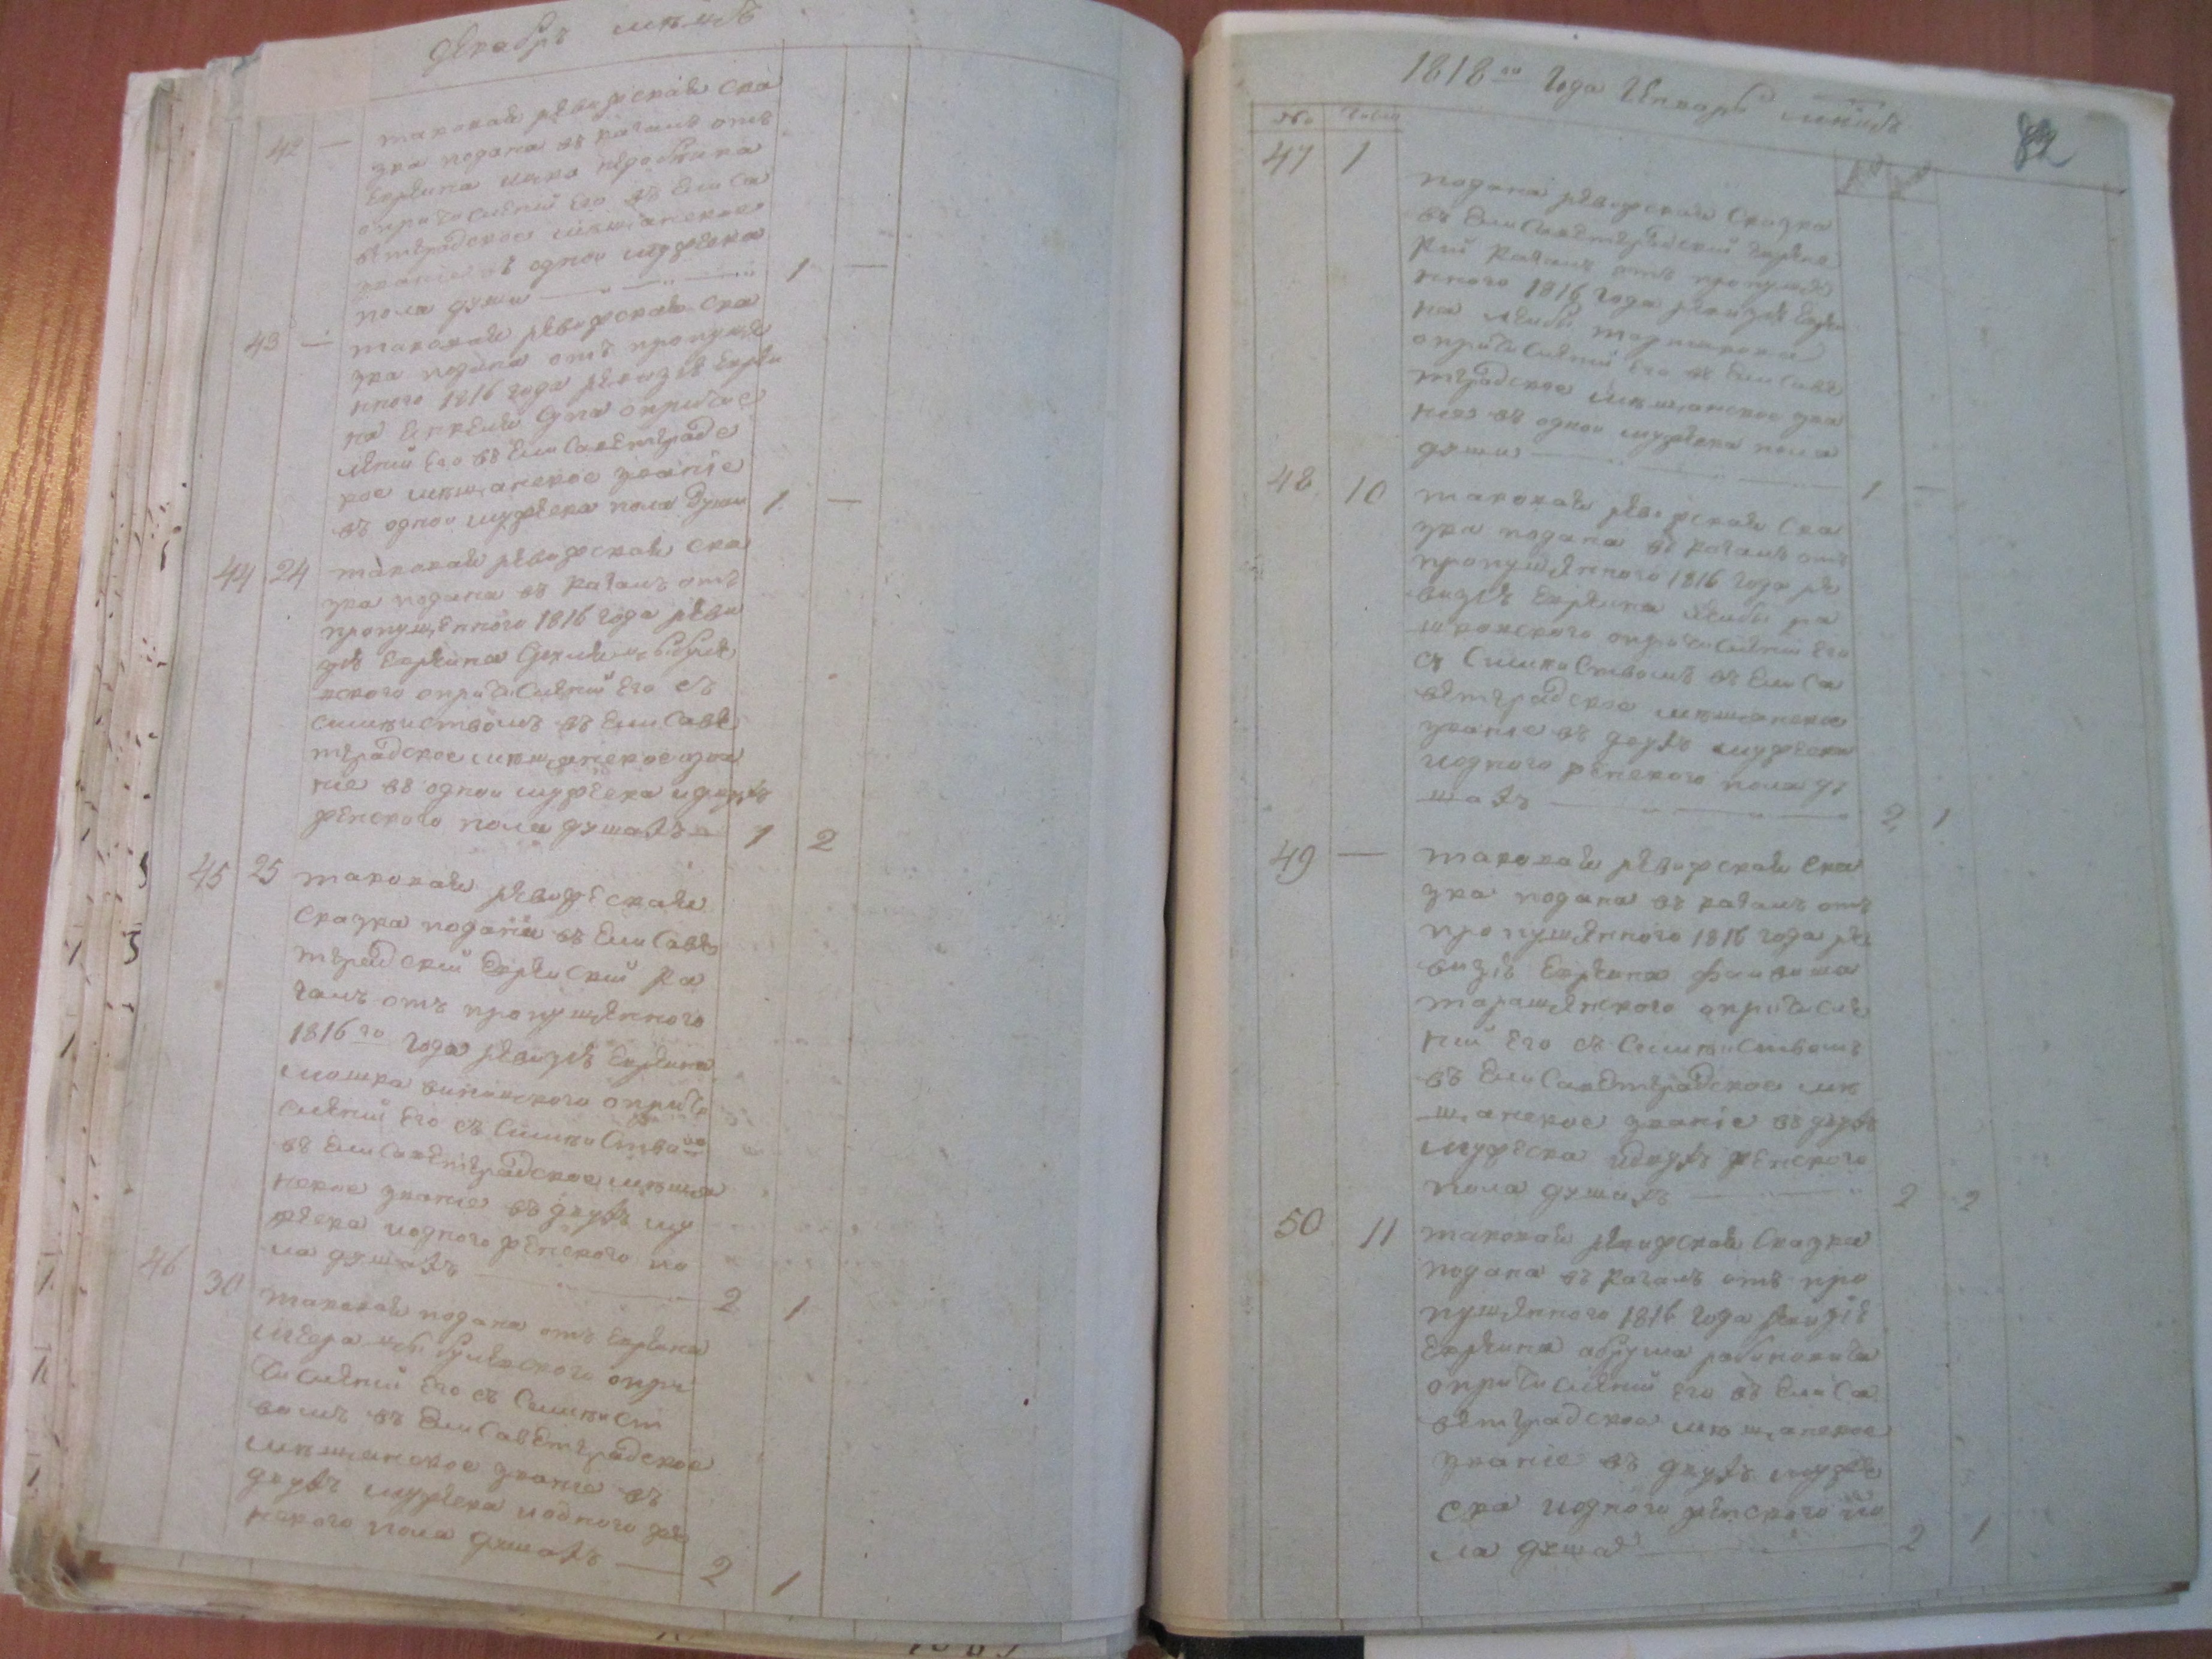 декабрь мѣсяцъ
42 —
таковая ревижская ска
зка подана въ кагалъ отъ
еврѣина
о причисленіи его въ Елиса
ветградское мѣщанское
званіе въ одной мужеска
пола души — 1 —
43 —
таковая ревижская ска
зка подана отъ пропуще
нного 1816 года ревизіе еврѣи
на о причис
леніи его въ Елисаветградс
кое мѣщанское званіе
въ одной мужеска пола души 1 —
44 24
таковая ревижская ска
зка подана въ кагалъ отъ
пропущенного 1816 года реви
зіе еврѣина
о причисленіи его съ
семействомъ въ Елисаве
тградское мѣщанское зва
ніе въ одной мужеска и двухъ
женского пола душахъ 1 2
45 25
таковая ревижская
сказка подана въ Елисаве
тградский еврѣйский ка
галъ отъ пропущенного
1816го года ревизіе еврѣина
мошка о причи
сленіи его съ семейством
въ Елисаветградское мѣща
нское званіе въ двухъ му
жеска и одного женского по
ла душахъ — 2 1
46 30
таковая подана отъ еврѣина
о при
численіи его съ семейст
вомъ въ Елисаветградское
мѣщанское званіе въ
двухъ мужеска и одного же
нского пола душахъ — 2 1
1818го Года Генварь мѣсяцъ
82
№ Числ
47 1
подана ревижская сказка
въ Елисаветградский еврѣйс
кий кагалъ отъ пропуще
нного 1816 года ревизіе еврѣи
на лейбы
о причисленіи его въ Елисаве
тградское мѣщанское зва
ніе въ одной мужеска пола
души — 1 —
48 10
таковая ревижская ска
зка подана въ кагалъ отъ
пропущенного 1816 года ре
визіе еврѣина лейбы ра
шковского о причисленіи его
съ семействомъ въ Елиса
ветградское мѣщанское
званіе въ двухъ мужеска
и одного женского пола ду
шахъ — 2 1
49 —
таковая ревижская ска
зка подана въ кагалъ отъ
пропущенного 1816 года ре
визіе еврѣина
таращенского о причисле
ніи его съ семействомъ
въ Елисаветградское мѣ
щанское званіе въ двухъ
мужеска и двухъ женского
пола душахъ — 2 2
50 11
таковая ревижская сказка
подана въ кагалъ отъ про
пущенного 1816 года ревизіе
еврѣина абрума рабиновича
о причисленіи его въ Елиса
ветградское мѣщанское
званіе въ двухъ муже
ска и одного женского по
ла душа — 2 1